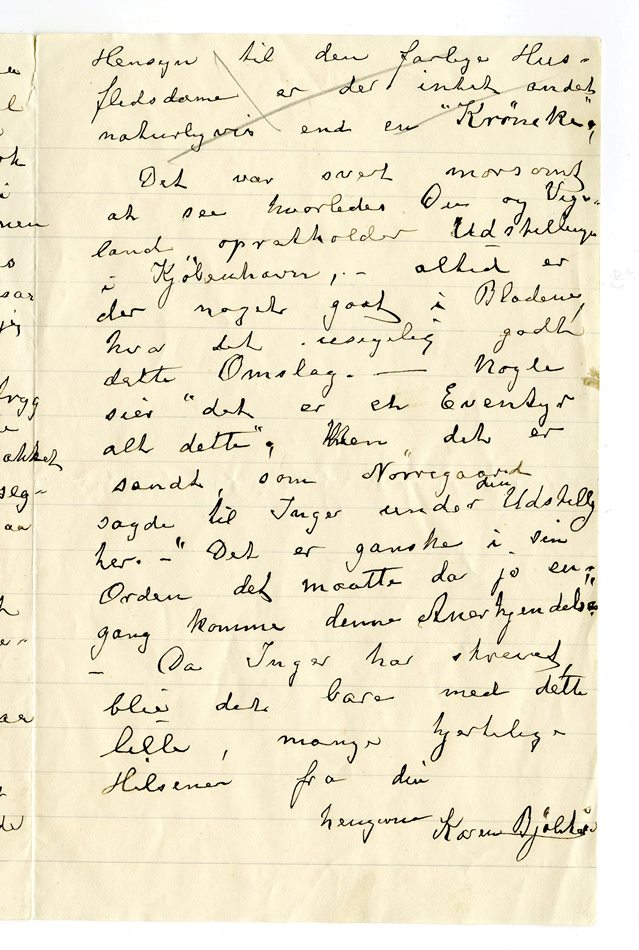 Hensyn til den farlige Hus-
flidsdame er der intet andet
naturligvis end en "Krøneke",
Det var svert morsomt
at see hvorledes Du og Vige-
land opratholder Udstillingen
i Kjöbenhavn, - altid er
der noget godt i Bladene,
hva det usigelig godt
dette Omslag. — Nogle
sier "det er et Eventyr
alt dette", Men det er
sandt, som Nörregaard
sagde til Inger under din Udstillg
her. - "Det er ganske i sin
Orden det maatte da jo en-
gang komme denne Anerkjendelse"
- Da Inger har skrevet,
blir det bare med dette
lille, mange hjertelige
Hilsener fra din
hengivne Karen Bjölstad
ok
i
nen
sar
jeg
rygg
seg-
aa
aa
de